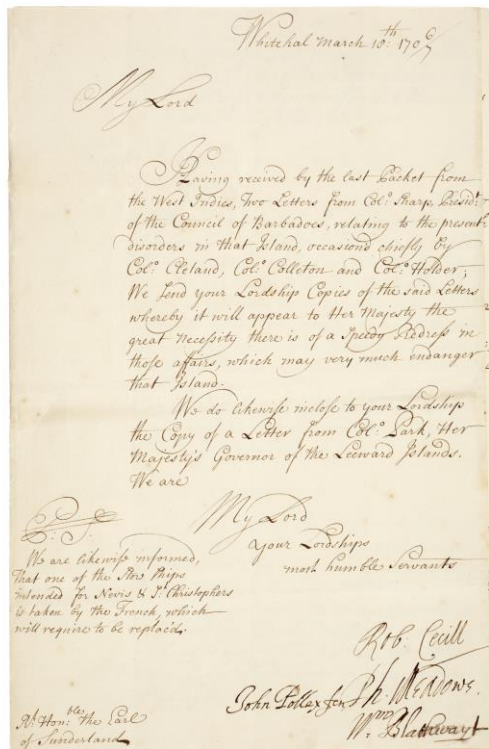 Whitehal March 18:th 170 6/7
My Lord
Having received by the last Packet from
the West Indies, Two Letters from Col:o Sharp, Presid:t
of the Council of Barbadoes, relating to the present
disorders in that Island, occasiond chiefly by
Col:o Cleland, Col:o Colleton and Col:o Holder;
We send your Lordship Copies of the said Letters
whereby it will appear to Her Majesty the
great necessity there is of a Speedy Address in
those affairs, which may very much endanger
that Island.
We do likewise inclose to your Lordship
the Copy of a Letter from Col:o Park, Her
Majesty's Governor of the Leeward Islands.
We are
My Lord
Your Lordships
most humble Servants
P. S.
We are likewise informed,
that one of the Stors Ships
intended for Nevis & S:t Christophers
is taken by the French, which
will require to be replacd.
Rob: Cecill
Ph. Meadows.
John Pollexfen
W:m Blathwayt
R:t Hon:ble the Earl
of Sunderland